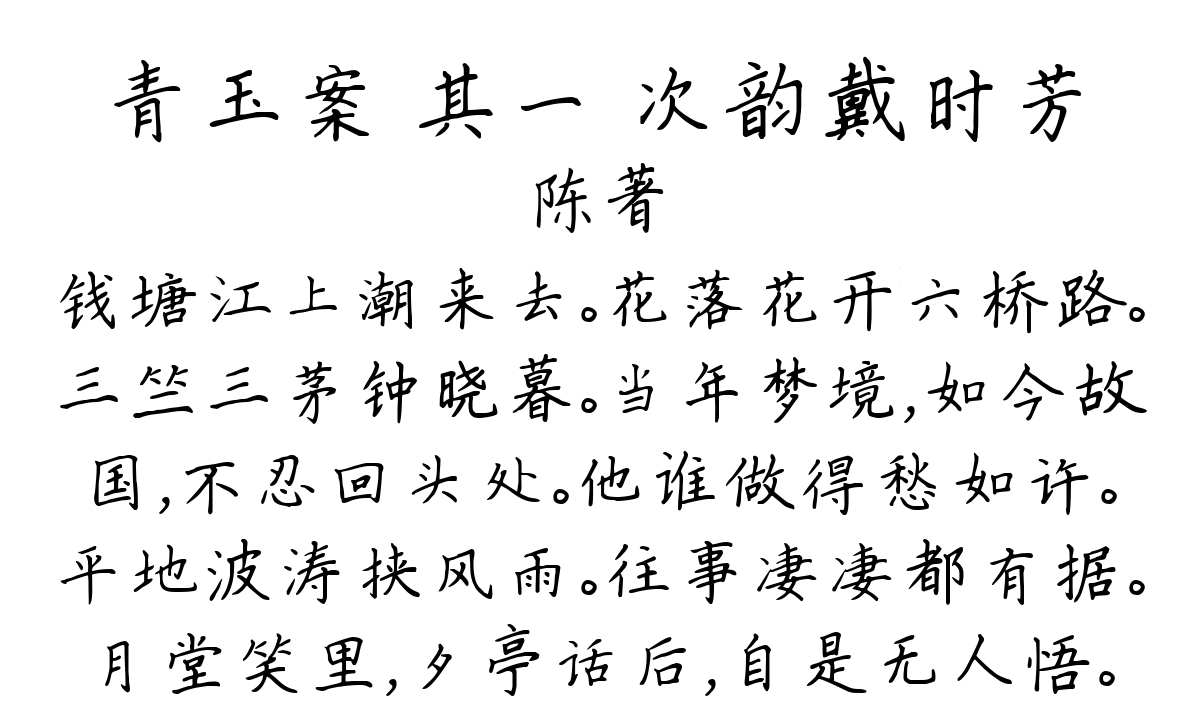 青玉案 其一 次韵戴时芳
陈著
钱塘江上潮来去。花落花开六桥路。
三竺三茅钟晓暮。当年梦境,如今故
国,不忍回头处。他谁做得愁如许。
平地波涛挟风雨。往事凄凄都有据。
月堂笑里,夕亭话后,自是无人悟。